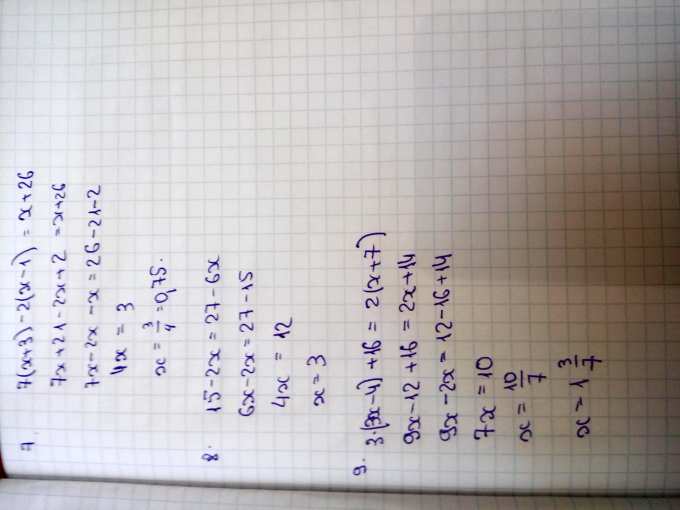 7 7(x+3)-2(x-1) = x+26
7x+21-2x+2 = x+26
7x-2x-x = 26-21-2
4x = 3
x = 3/4 = 0,75.
8. 15-2x = 27-6x
6x-2x = 27-15
4x = 12
x = 3
9. 3·(3x-4)+16 = 2(x+7)
9x-12+16 = 2x+14
9x-2x = 12-16+14
7x = 10
x = 10/7
x = 1 3/7